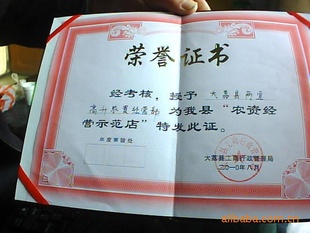 荣誉证书
经考核，授予 大荔县两宜
高升农资经营部 为我县“农资经
营示范店”特发此证。
年度审验处
大荔县工商行政管理局
二〇一〇年八月
alibaba.com.cn